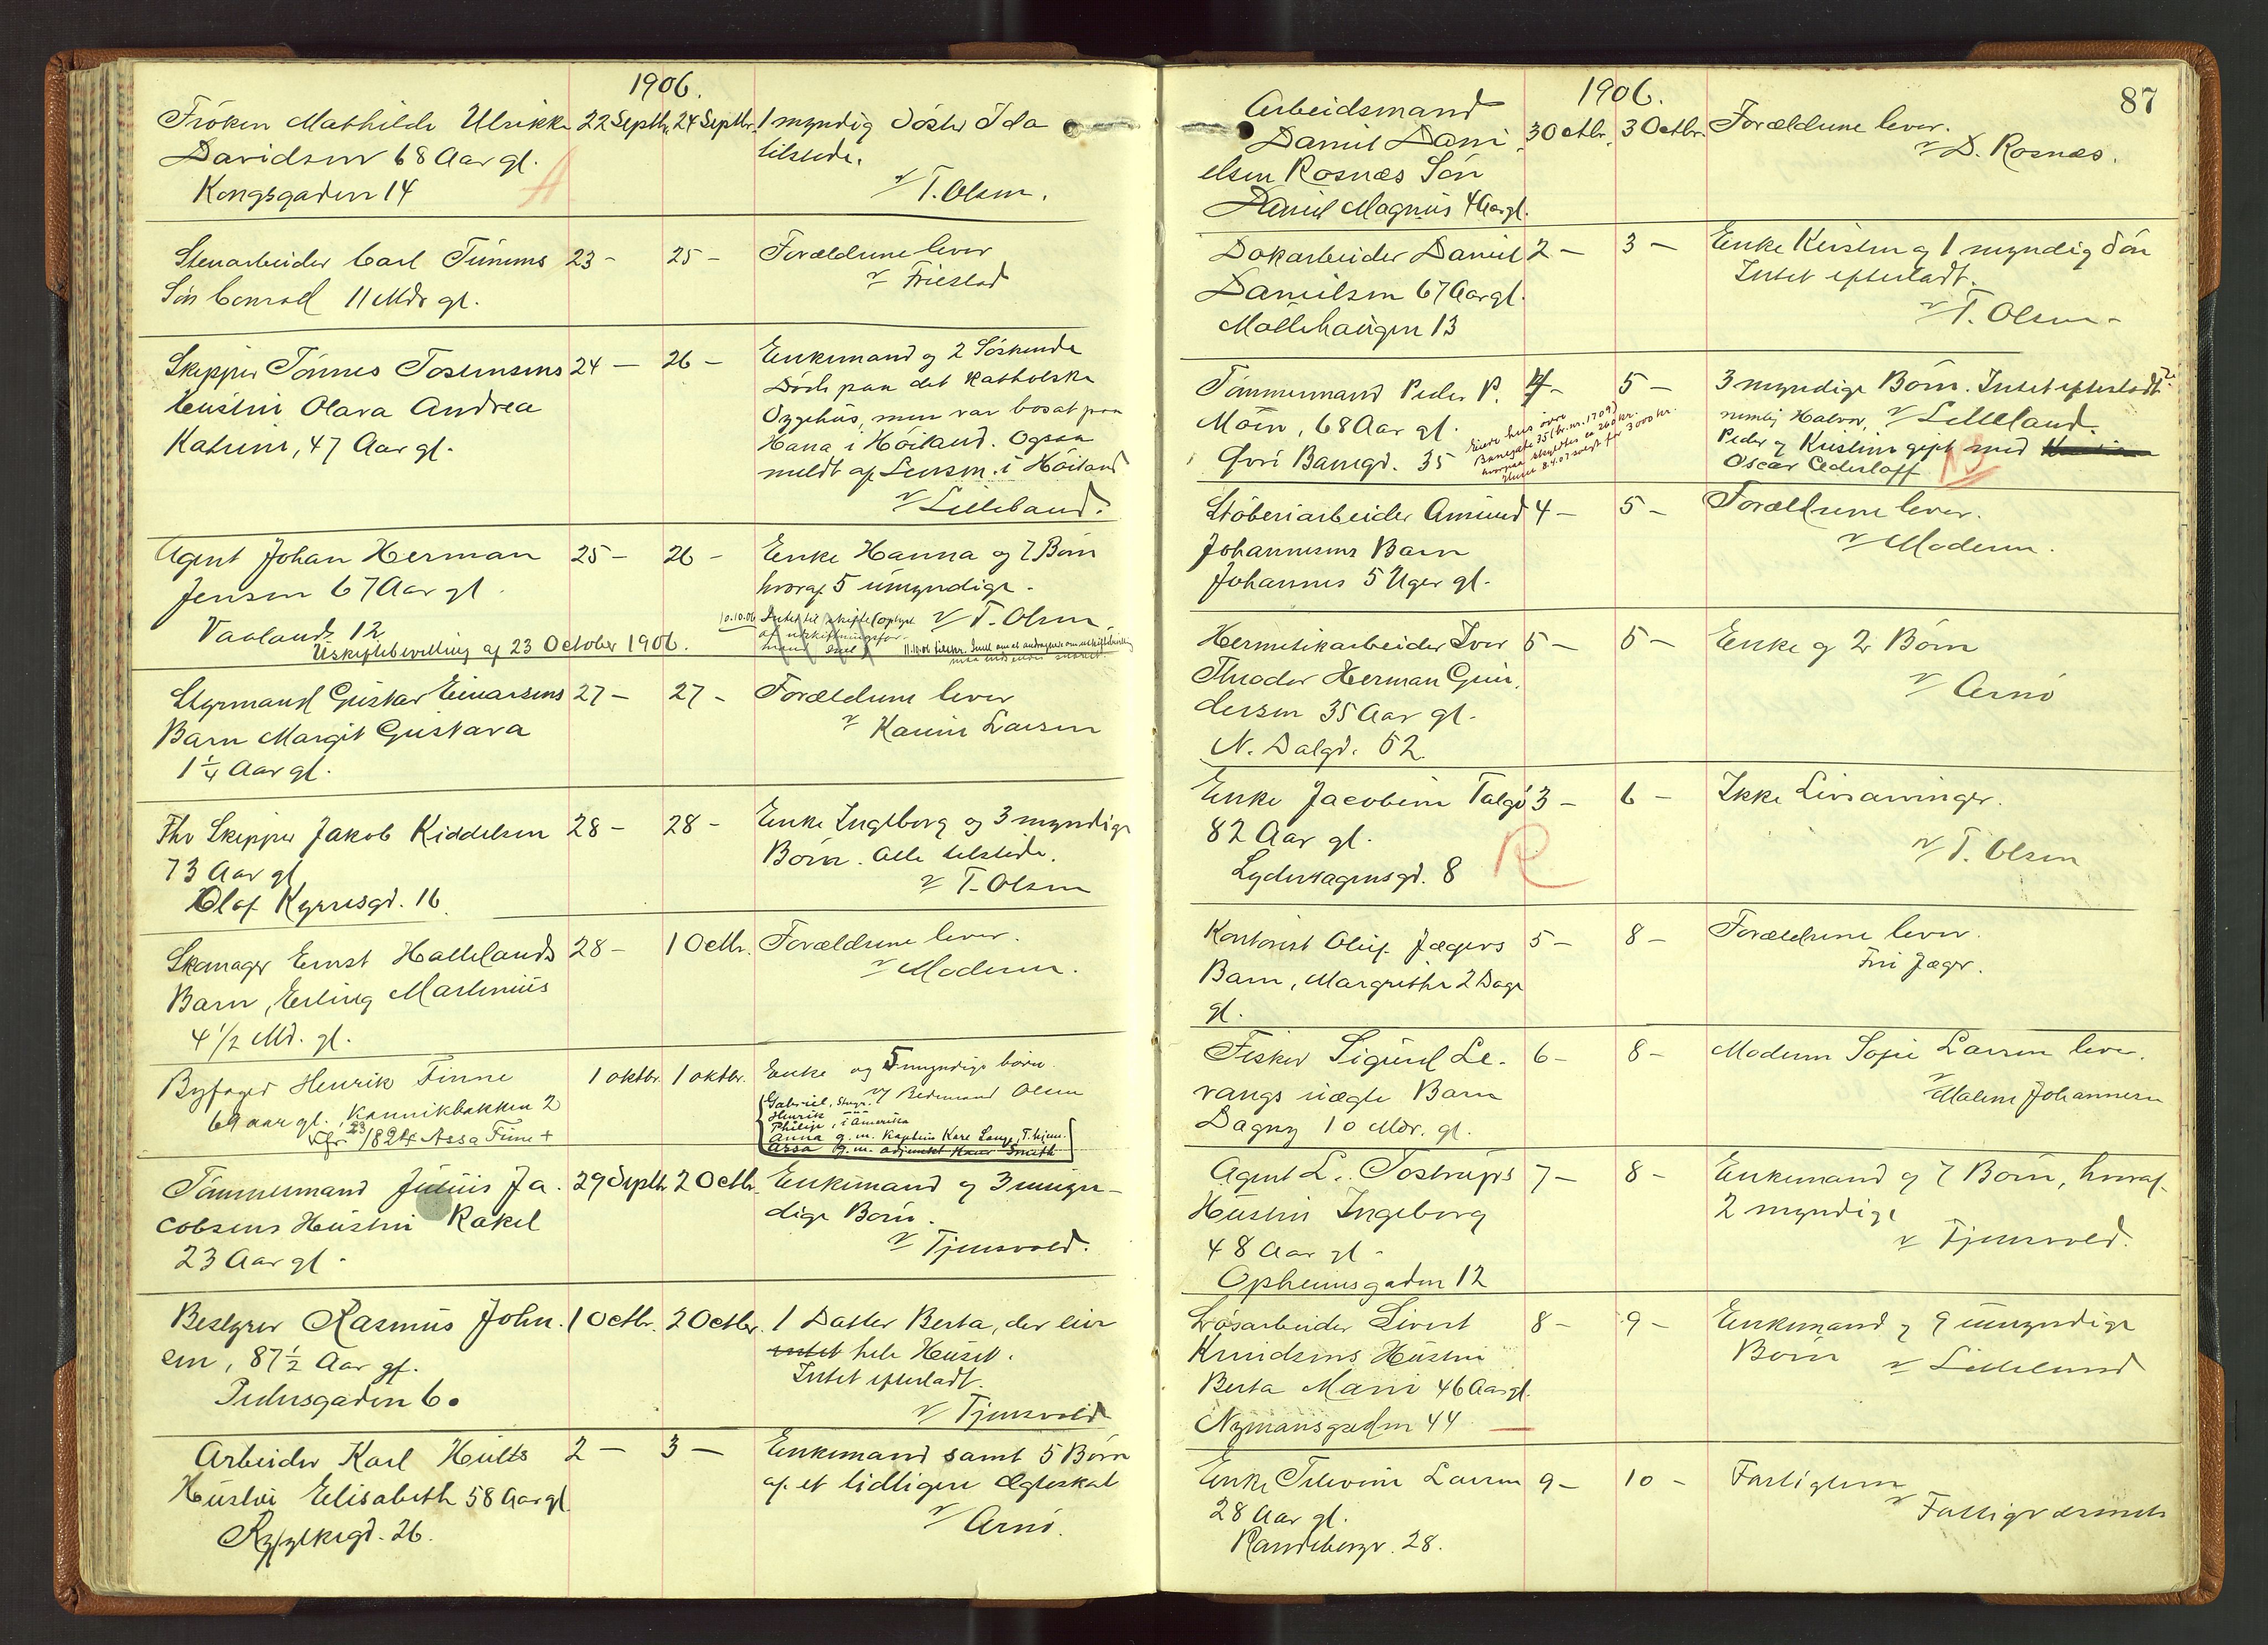 1906.
Fröken Mathilde Ulrikke 22 Septbr. 24 Septbr. 1 myndig Söster Ida
Davidsen 68 Aar gl. tilstede.
Kongsgaden 14 A v/ T. Olsen.
Stenarbeider Carl Timms 23 - 25 - Forældrene lever
Sön Conrad 11 Mdr gl. v/ Friestad
Skipper Tönnes Tostensens 24 - 26 - Enkemand og 2 Söskende
Hustru Olava Andrea Döde paa det Katholske
Katrine, 47 Aar gl. Sygehus, men var bosat paa
Hana i Höiland. Ogsaa
meldt af Lensm. i Höiland
v/ Lilleland.
Agent Johan Herman 25 - 26 - Enke Hanna og 7 Börn
Jensen 67 Aar gl. hvoraf 5 umyndige.
Vaalands. 12 10.10.06 Intet til skifte (oplyst v/ T. Olsen.
Uskiftebevilling af 23 October 1906. af
Styrmand Gustav Einarsens 27 - 27 - Forældrene lever
Barn Margit Gustava v/ Karine Larsen
1 1/4 Aar gl.
Fhv Skipper Jakob Kiddelsen 28 - 28 - Enke Ingeborg og 3 myndige
73 Aar gl Börn. Alle tilstede.
Olaf Kyrresgd. 16. v/ T. Olsen
Skomager Ernst Hallelands 28 - 1 Octbr. Forældrene lever.
Barn, Erling Martinius v/ Moderen.
4 1/2 Md. gl.
Byfoged Henrik Finne 1 oktbr. 1 oktbr. Enke og 5 myndige börn.
69 aar gl., Kannikbakken 2 v/ Bedemand Olsen
Cfr. 23/1824 Assa Finne + Gabriel, Stvgr.
Henrik
Philip, i Amerika
Anna g. m. Kaptein Kare Lange, T.hjem.
Assa g. m. adjunkt Smith
Tömmermand Julius Ja- 29 Septbr 2 Octbr. Enkemand og 3 umyn-
cobsens Hustru Rakel dige Börn.
23 Aar gl. v/ Tjensvold.
Bestyrer Rasmus John- 1 Octbr. 2 Octbr. 1 Datter Berta, der eier
sen, 87 1/2 Aar gl. intet hele Huset.
Pedersgaden 60 Intet efterladt.
v/ Tjensvold
Arbeider Karl Hults 2 - 3 - Enkemand samt 5 Börn
Hustru Elisabeth 58 Aar gl af et tidligere Ægteskab
Ryfylkegd. 26. v/ Arnö.
1906. 87
Arbeidsmand
Daniel Dani- 3 Octbr. 3 Octbr. Forældrene lever.
elsen Rosnæs Sön v/ D. Rosnæs.
Daniel Magnus 4 Aar gl.
Dokarbeider Daniel 2 - 3 - Enke Kirsten og 1 myndig Sön
Danielsen 67 Aar gl. Intet efterladt.
Möllehaugen 13 v/ T. Olsen
Tömmermand Peder P. 4 - 5 - 3 myndige Börn. Intet efterladt
Möen, 68 Aar gl. nemlig Halvor, v/ Lilleland.
Övre Banegd. 35 Peder og Kristine gift med
Oscar Cederloff
Eiede hus övre
Banegate 35 (br.nr. 1709)
hvorpaa skyldtes ca 2600 kr.
Huset 8.4.07 solgt for 3000 kr.
Stöberiarbeider Amund 4 - 5 - Forældrene lever.
Johannesens Barn v/ Moderen.
Johannes 5 Uger gl.
Hermetikarbeider Iver 5 - 5 - Enke og 2 Börn
Theodor Herman Gun- v/ Arnö
dersen 35 Aar gl.
N. Dalgd. 52.
Enke Jacobine Talgö 3 - 6 - Ikke Livsarvinger.
82 Aar gl. R v/ T. Olsen
Lydersagensgd. 8
Kontorist Oluf Jægers 5 - 8 - Forældrene lever.
Barn, Margrethe 2 Dage Fru Jæger.
gl.
Fisker Sigurd Le- 6 - 8 - Moderen Sofie Larsen lever.
vangs uægte Barn v/ Malene Johannesen
Dagny 10 Mdr. gl.
Agent L. Tostrups 7 - 8 - Enkemand og 7 Börn, hvoraf
Hustru Ingeborg 2 myndige
48 Aar gl. v/ Tjensvold.
Opheimsgaden 12
Lösarbeider Sivert 8 - 9 - Enkemand og 9 umyndige
Knudsens Hustru Börn v/ Lilleland
Berta Marie 46 Aar gl.
Nymansgaden 44
Enke Larsen 9 - 10 - Fattiglem
28 Aar gl. v/ Fattigvæsenet
Randebergv. 28.